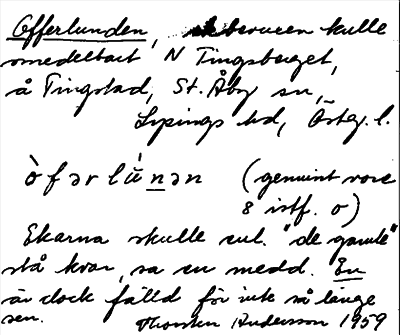 Offerlunden, bevuxen kulle
omedelbart N Tingsberget,
å Tingstad, St. Åby sn,
Lysings hd, Östg. l.
òfərlùnən (genuint vore
8 istf. o)
Ekarna skulle enl. "de gamle"
stå kvar, sa en medd. En
är dock fälld för inte så länge
sen. Thorsten Andersson 1959